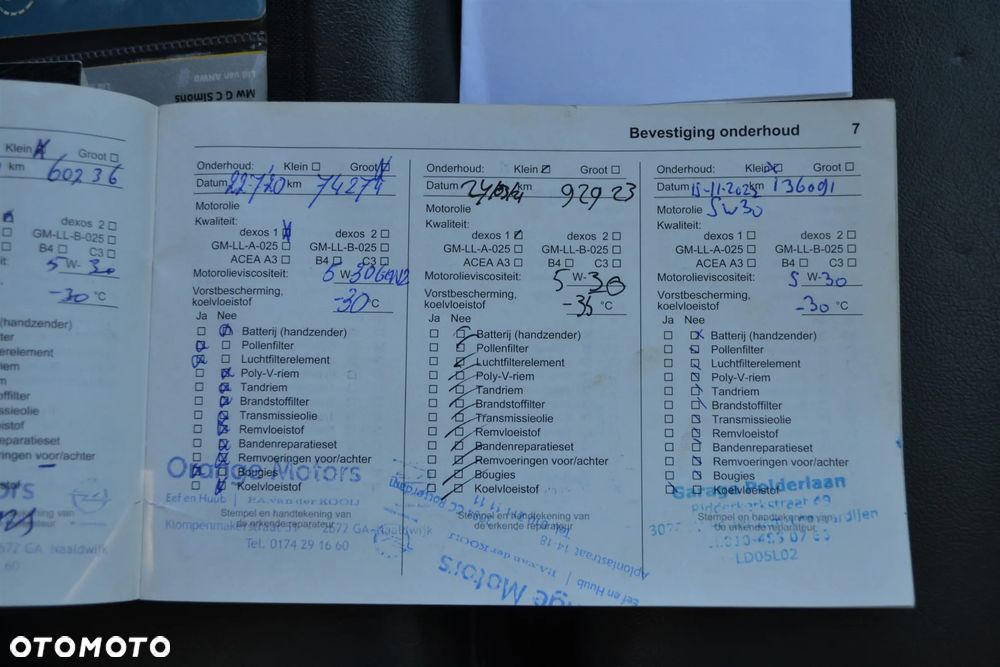 Lid van ANWB
Mw G C Simons
Klein Groot
km 60236
dexos 2
B-025
B4 C3
5 W- 30
-30 °C
(handzender)
relement
m
offilter
ssieolie
istof
reparatieset
ringen voor/achter
2672 GA Naaldwijk
60
Bevestiging onderhoud 7
Onderhoud: Klein Groot
Datum km 74274
Motorolie
Kwaliteit:
dexos 1 dexos 2
GM-LL-A-025 GM-LL-B-025
ACEA A3 B4 C3
Motorolieviscositeit: 5 W-30
Vorstbescherming,
koelvloeistof -30 °C
Ja Nee
Batterij (handzender)
Pollenfilter
Luchtfilterelement
Poly-V-riem
Tandriem
Brandstoffilter
Transmissieolie
Remvloeistof
Bandenreparatieset
Remvoeringen voor/achter
Bougies
Koelvloeistof
Orange Motors
Eef en Huub | P.A. van der KOOIJ
Stempel en handtekening van
de erkende reparateur
2672 GA Naaldwijk
Tel. 0174 29 16 60
Onderhoud: Klein Groot
Datum km 92923
Motorolie
Kwaliteit:
dexos 1 dexos 2
GM-LL-A-025 GM-LL-B-025
ACEA A3 B4 C3
Motorolieviscositeit: 5 W-30
Vorstbescherming,
koelvloeistof -35 °C
Ja Nee
Batterij (handzender)
Pollenfilter
Luchtfilterelement
Poly-V-riem
Tandriem
Brandstoffilter
Transmissieolie
Remvloeistof
Bandenreparatieset
Remvoeringen voor/achter
Bougies
Koelvloeistof
Stempel en handtekening van
de erkende reparateur
Aploniastraat 14-18
Eef en Huub | P.A. van der KOOIJ
Motors
Onderhoud: Klein Groot
Datum 15-11-2022 km 136091
Motorolie 5W30
Kwaliteit:
dexos 1 dexos 2
GM-LL-A-025 GM-LL-B-025
ACEA A3 B4 C3
Motorolieviscositeit: 5 W-30
Vorstbescherming,
koelvloeistof -30 °C
Ja Nee
Batterij (handzender)
Pollenfilter
Luchtfilterelement
Poly-V-riem
Tandriem
Brandstoffilter
Transmissieolie
Remvloeistof
Bandenreparatieset
Remvoeringen voor/achter
Bougies
Koelvloeistof
Garage Polderlaan
Stempel en handtekening van
de erkende reparateur
LD05L02
OTOMOTO